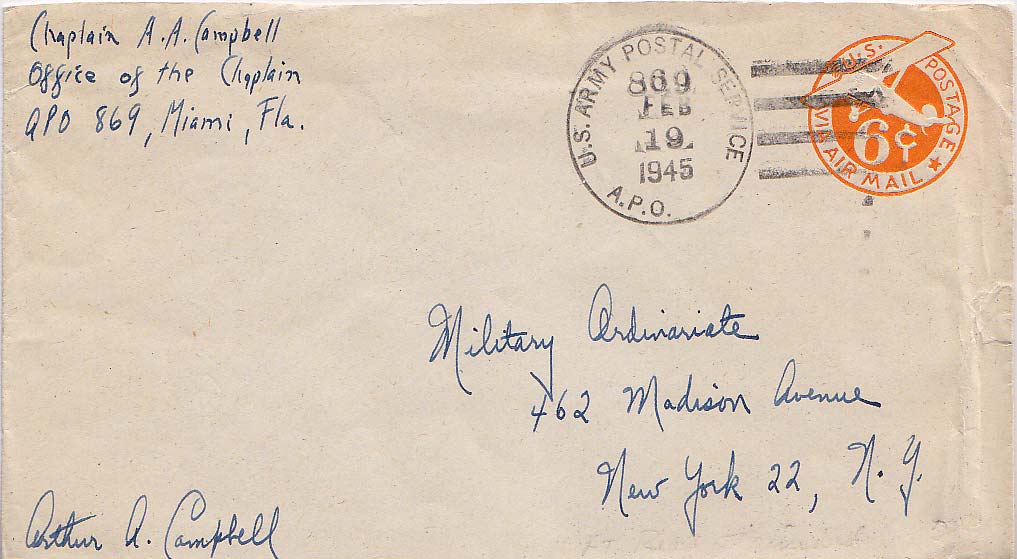 Chaplain A.A. Campbell
Office of the Chaplain
APO 869, Miami, Fla.
U.S. ARMY POSTAL SERVICE
869
FEB
19
1945
A.P.O.
U.S. POSTAGE
6¢
VIA AIR MAIL
Military Ordinariate
462 Madison Avenue
New York 22, N.Y.
Arthur A. Campbell